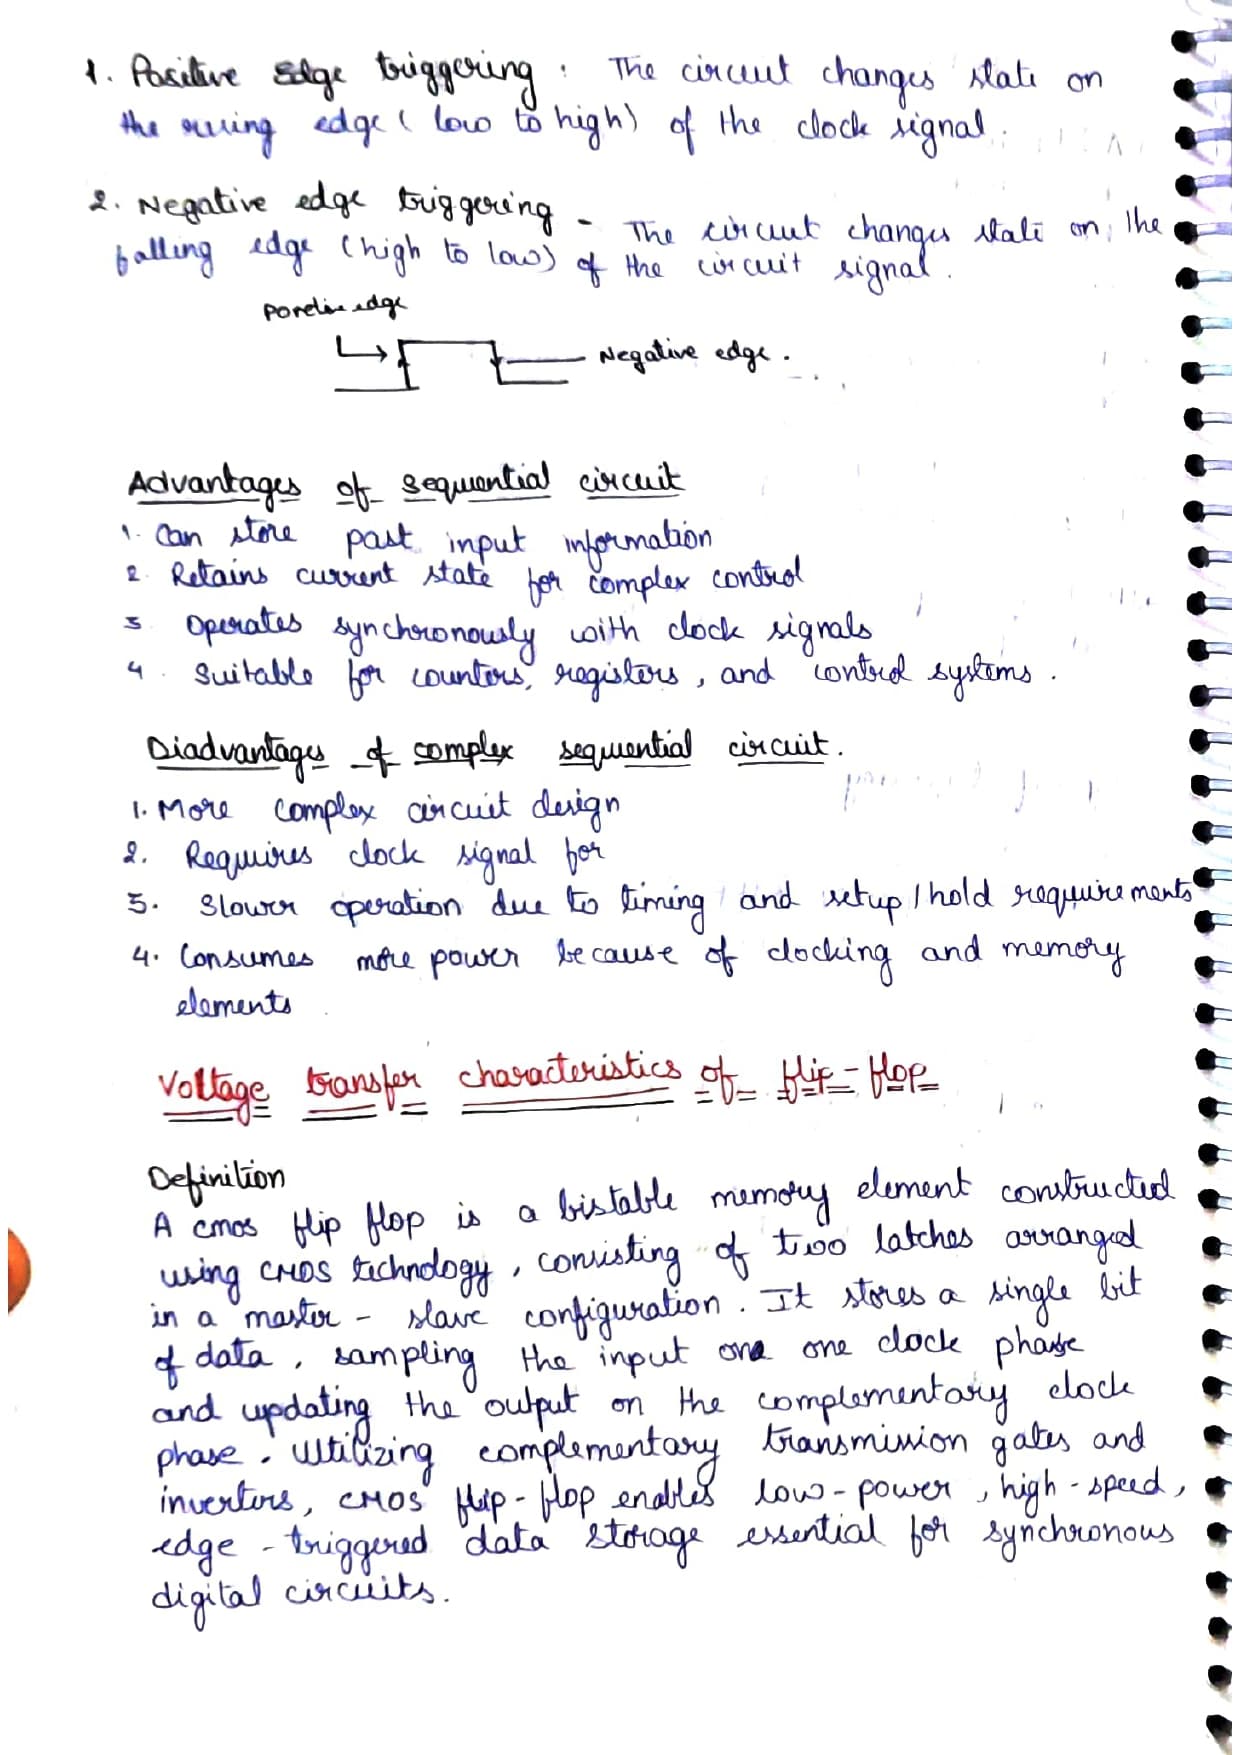 1. Positive Edge triggering : The circuit changes state on
the rising edge ( low to high) of the clock signal.
2. Negative edge triggering - The circuit changes state on the
falling edge (high to low) of the circuit signal.
Positive edge
Negative edge.
Advantages of sequential circuit
1. Can store past input information
2. Retains current state for complex control
3 Operates synchronously with clock signals
4. Suitable for counters, registers, and control systems.
Diadvantages of complex sequential circuit.
1. More complex circuit design
2. Requires clock signal for
3. Slower operation due to timing and setup / hold requirements
4. Consumes more power because of clocking and memory
elements
Voltage transfer characteristics of flip-flop
Definition
A cmos flip flop is a bistable memory element constructed
using CMOS technology, consisting of two latches arranged
in a master - slave configuration. It stores a single bit
of data, sampling the input one one clock phase
and updating the output on the complementary clock
phase. Utilizing complementary transmission gates and
inverters, CMOS flip-flop enables low-power, high-speed,
edge-triggered data storage essential for synchronous
digital circuits.